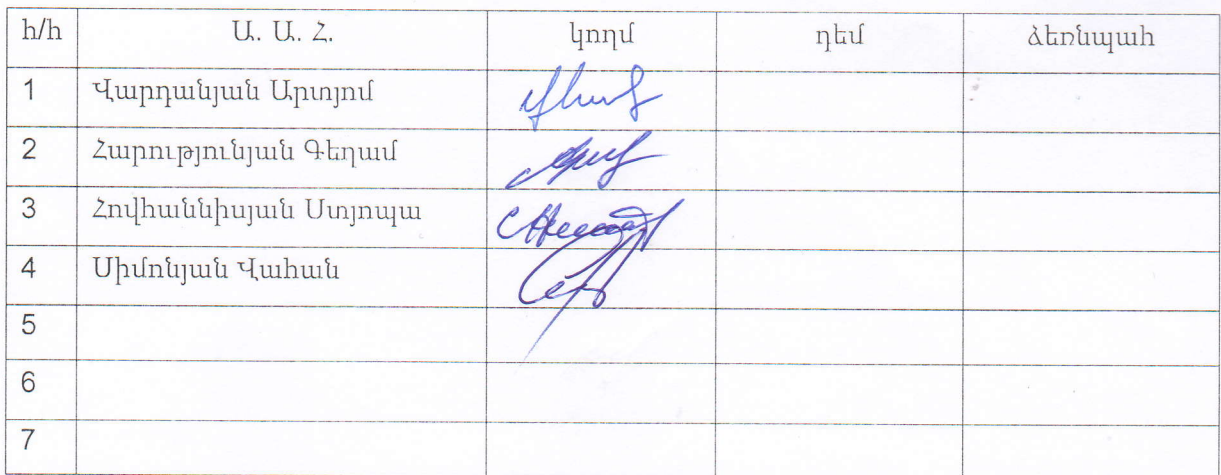 հ/հ Ա. Ա. Հ. կողմ դեմ ձեռնպահ
1 Վարդանյան Արտյոմ
2 Հարությունյան Գեղամ
3 Հովհաննիսյան Ստյոպա
4 Սիմոնյան Վահան
5
6
7